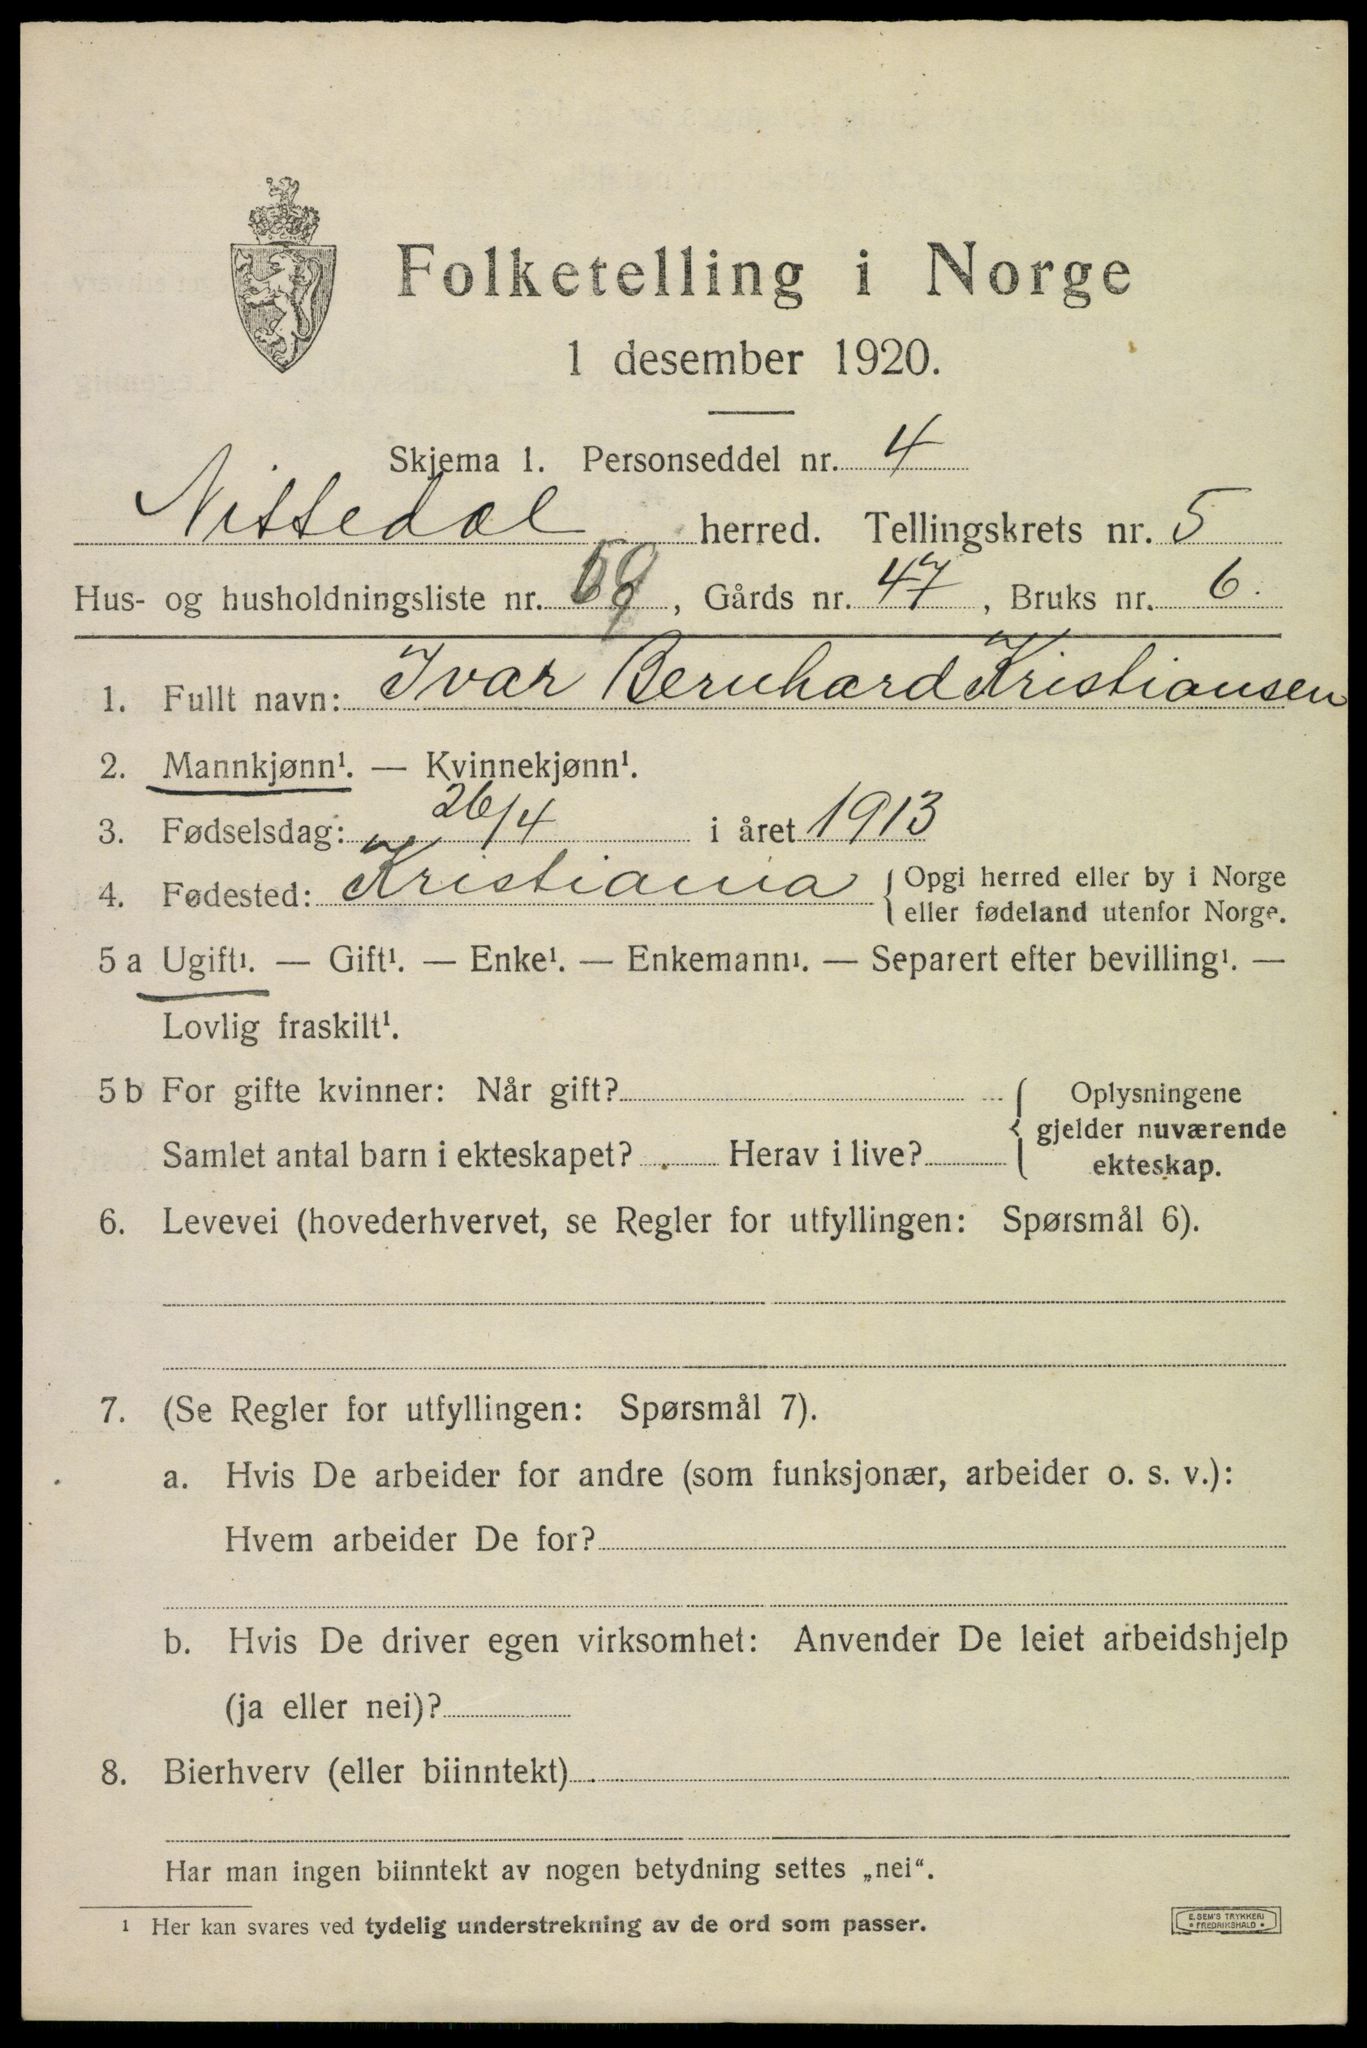 Folketelling i Norge
1 desember 1920.
Skjema 1. Personseddel nr. 4
Nittedal herred. Tellingskrets nr. 5
Hus- og husholdningsliste nr. , Gårds nr. 47, Bruks nr. 6.
1. Fullt navn: Ivar Bernhard Kristiansen
2. Mannkjønn¹. — Kvinnekjønn¹.
3. Fødselsdag: 26/4 i året 1913
4. Fødested: Kristiania { Opgi herred eller by i Norge
eller fødeland utenfor Norge.
5 a Ugift¹. — Gift¹. — Enke¹. — Enkemann¹. — Separert efter bevilling¹. —
Lovlig fraskilt¹.
5 b For gifte kvinner: Når gift? { Oplysningene
gjelder nuværende
Samlet antal barn i ekteskapet? Herav i live? ekteskap.
6. Levevei (hovederhvervet, se Regler for utfyllingen: Spørsmål 6).
7. (Se Regler for utfyllingen: Spørsmål 7).
a. Hvis De arbeider for andre (som funksjonær, arbeider o. s. v.):
Hvem arbeider De for?
b. Hvis De driver egen virksomhet: Anvender De leiet arbeidshjelp
(ja eller nei)?
8. Bierhverv (eller biinntekt)
Har man ingen biinntekt av nogen betydning settes „nei“.
¹ Her kan svares ved tydelig understrekning av de ord som passer.
E. SEM'S TRYKKERI
• FREDRIKSHALD •